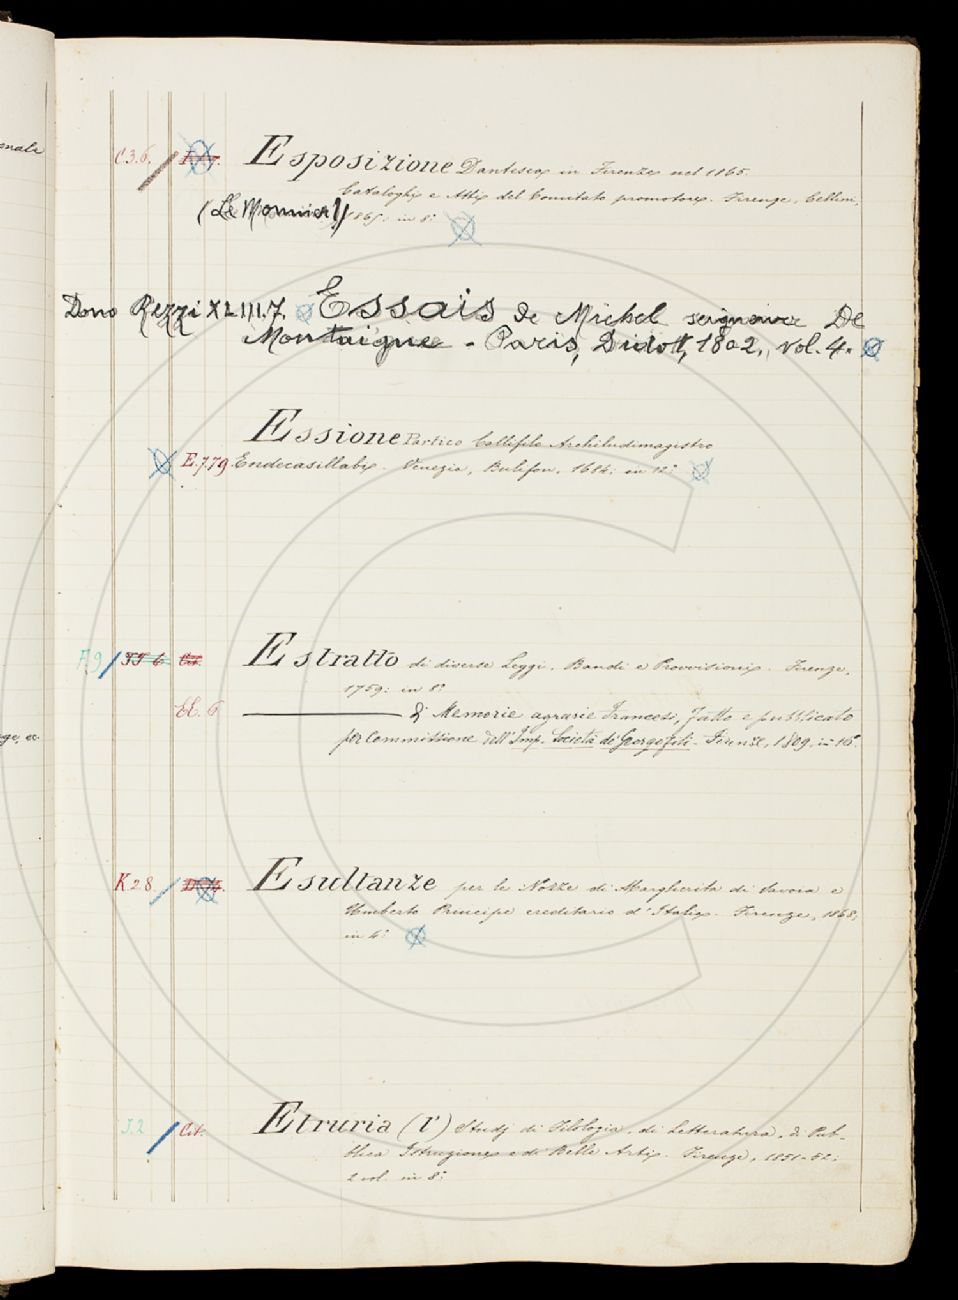 C.3.6. Esposizione Dantesca in Firenze nel 1865.
Cataloghi e Atti del Comitato promotore. Firenze, Cellini,
(Le Monnier) 1865: in 8:
Dono Rezzi XLIII.7. Essais de Michel seigneur De
Montaigne - Paris, Didot, 1802, vol. 4.
Essione Partico Archiludimagistro
E.7.79 Endecasillabi. Venezia, Bulifon, 1684: in 12:
F.9 Estratto di diverse Leggi, Bandi e Provvisioni. Firenze,
1759: in 8:
EE. 6 di Memorie agrarie Francesi, fatto e pubblicato
per Commissione dell'Imp. Società de' Georgofili. Firenze, 1809, in 16.
K.28. Esultanze per le Nozze di Margherita di Savoia e
Umberto Principe ereditario d'Italia. Firenze, 1868,
in 4:
J.2 Cit. Etruria (l') Studj di Filologia, di Letteratura, di Pub-
blica Istruzione e di Belle Arti. Firenze, 1851-52:
2 vol. in 8: